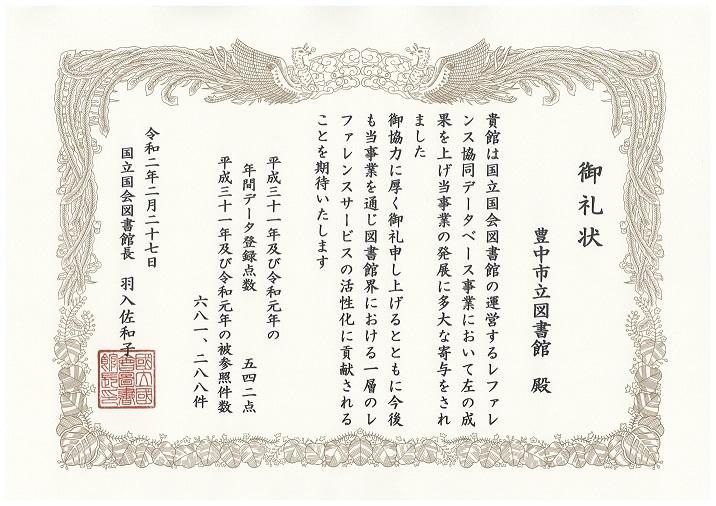 御礼状
豊中市立図書館 殿
貴館は国立国会図書館の運営するレファレ
ンス協同データベース事業において左の成
果を上げ当事業の発展に多大な寄与をされ
ました
御協力に厚く御礼申し上げるとともに今後
も当事業を通じ図書館界における一層のレ
ファレンスサービスの活性化に貢献される
ことを期待いたします
平成三十一年及び令和元年の
年間データ登録点数 五四二点
平成三十一年及び令和元年の被参照件数
六八一、二八八件
令和二年二月二十七日
国立国会図書館長 羽入佐和子